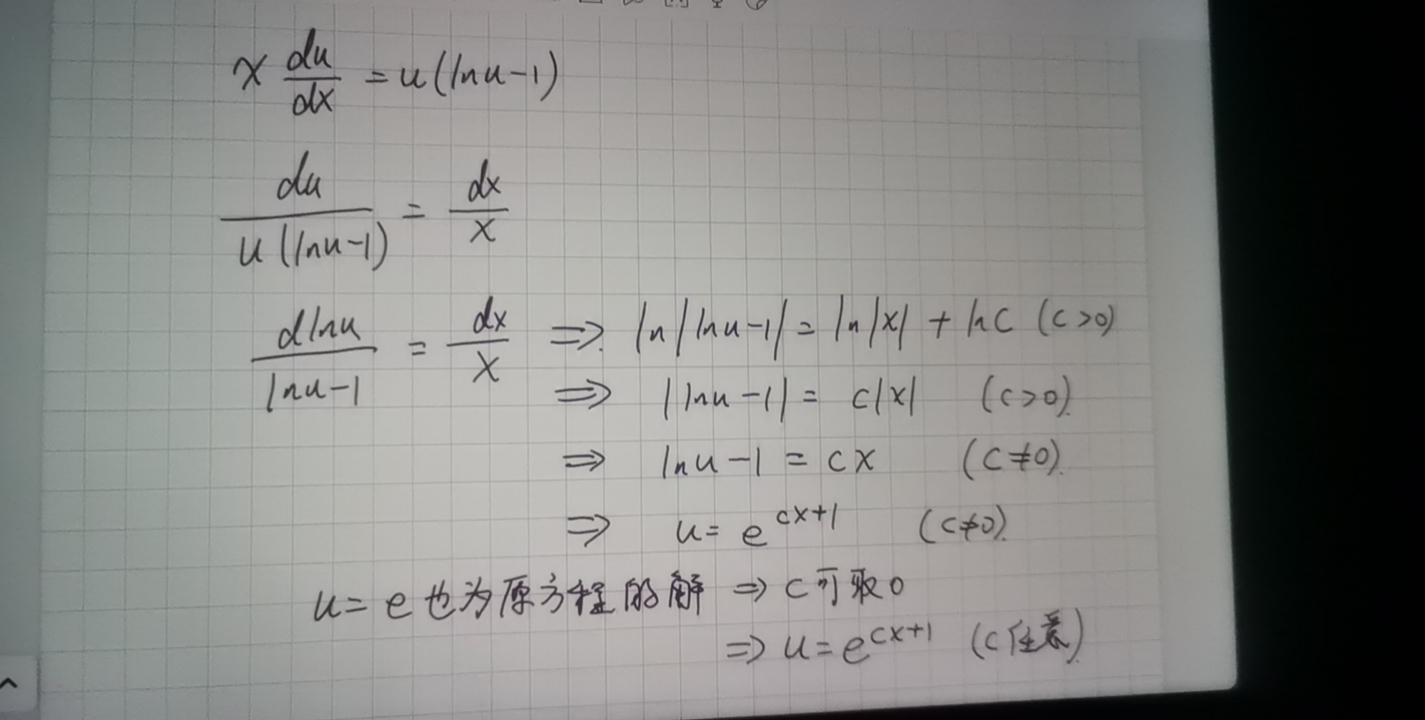 x du/dx = u(lnu-1)
du/u(lnu-1) = dx/x
dlnu/lnu-1 = dx/x ⇒ ln|lnu-1| = ln|x| + lnC (C>0)
⇒ |lnu-1| = c|x| (c>0)
⇒ lnu-1 = cx (C≠0)
⇒ u= e^{cx+1} (C≠0)
u= e也为原方程的解 ⇒ c可取0
⇒ u=e^{cx+1} (c任意)